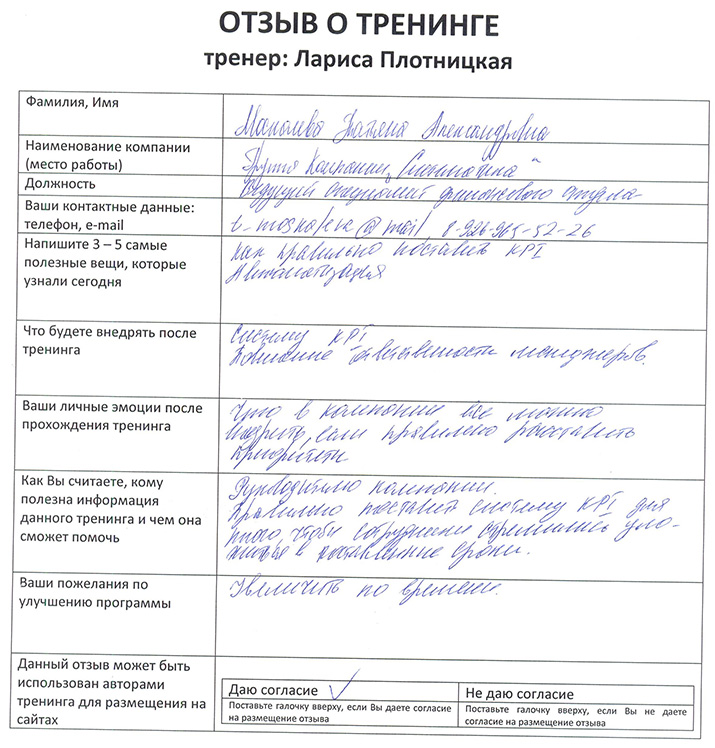 ОТЗЫВ О ТРЕНИНГЕ
тренер: Лариса Плотницкая
Фамилия, Имя
Татьяна Александровна
Наименование компании
(место работы)
Группа Компании „
Должность
Ведущий специалист финансового отдела
Ваши контактные данные:
телефон, e-mail
@mail, 8-926-965-52-26
Напишите 3 – 5 самые
полезные вещи, которые
узнали сегодня
Как правильно поставить KPI
Автоматизация
Что будете внедрять после
тренинга
Систему KPI
Повышение ответственности менеджеров.
Ваши личные эмоции после
прохождения тренинга
Что в компании все можно
внедрить, если правильно расставить
приоритеты
Как Вы считаете, кому
полезна информация
данного тренинга и чем она
сможет помочь
Руководителю компании.
Правильно поставит систему KPI для
того, чтобы сотрудники стремились уло-
житься в поставленные сроки.
Ваши пожелания по
улучшению программы
Увеличить по времени.
Данный отзыв может быть
использован авторами
тренинга для размещения на
сайтах
Даю согласие ✓
Поставьте галочку вверху, если Вы даете согласие
на размещение отзыва
Не даю согласие
Поставьте галочку вверху, если Вы не даете
согласие на размещение отзыва